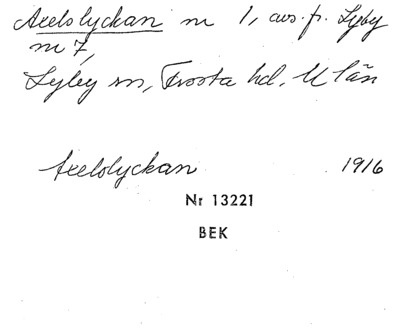 Axelslyckan nr 1, avs. fr. Lyby
nr 7,
Lyby sn, Frosta hd. M län
Axelslyckan 1916
Nr 13221
BEK